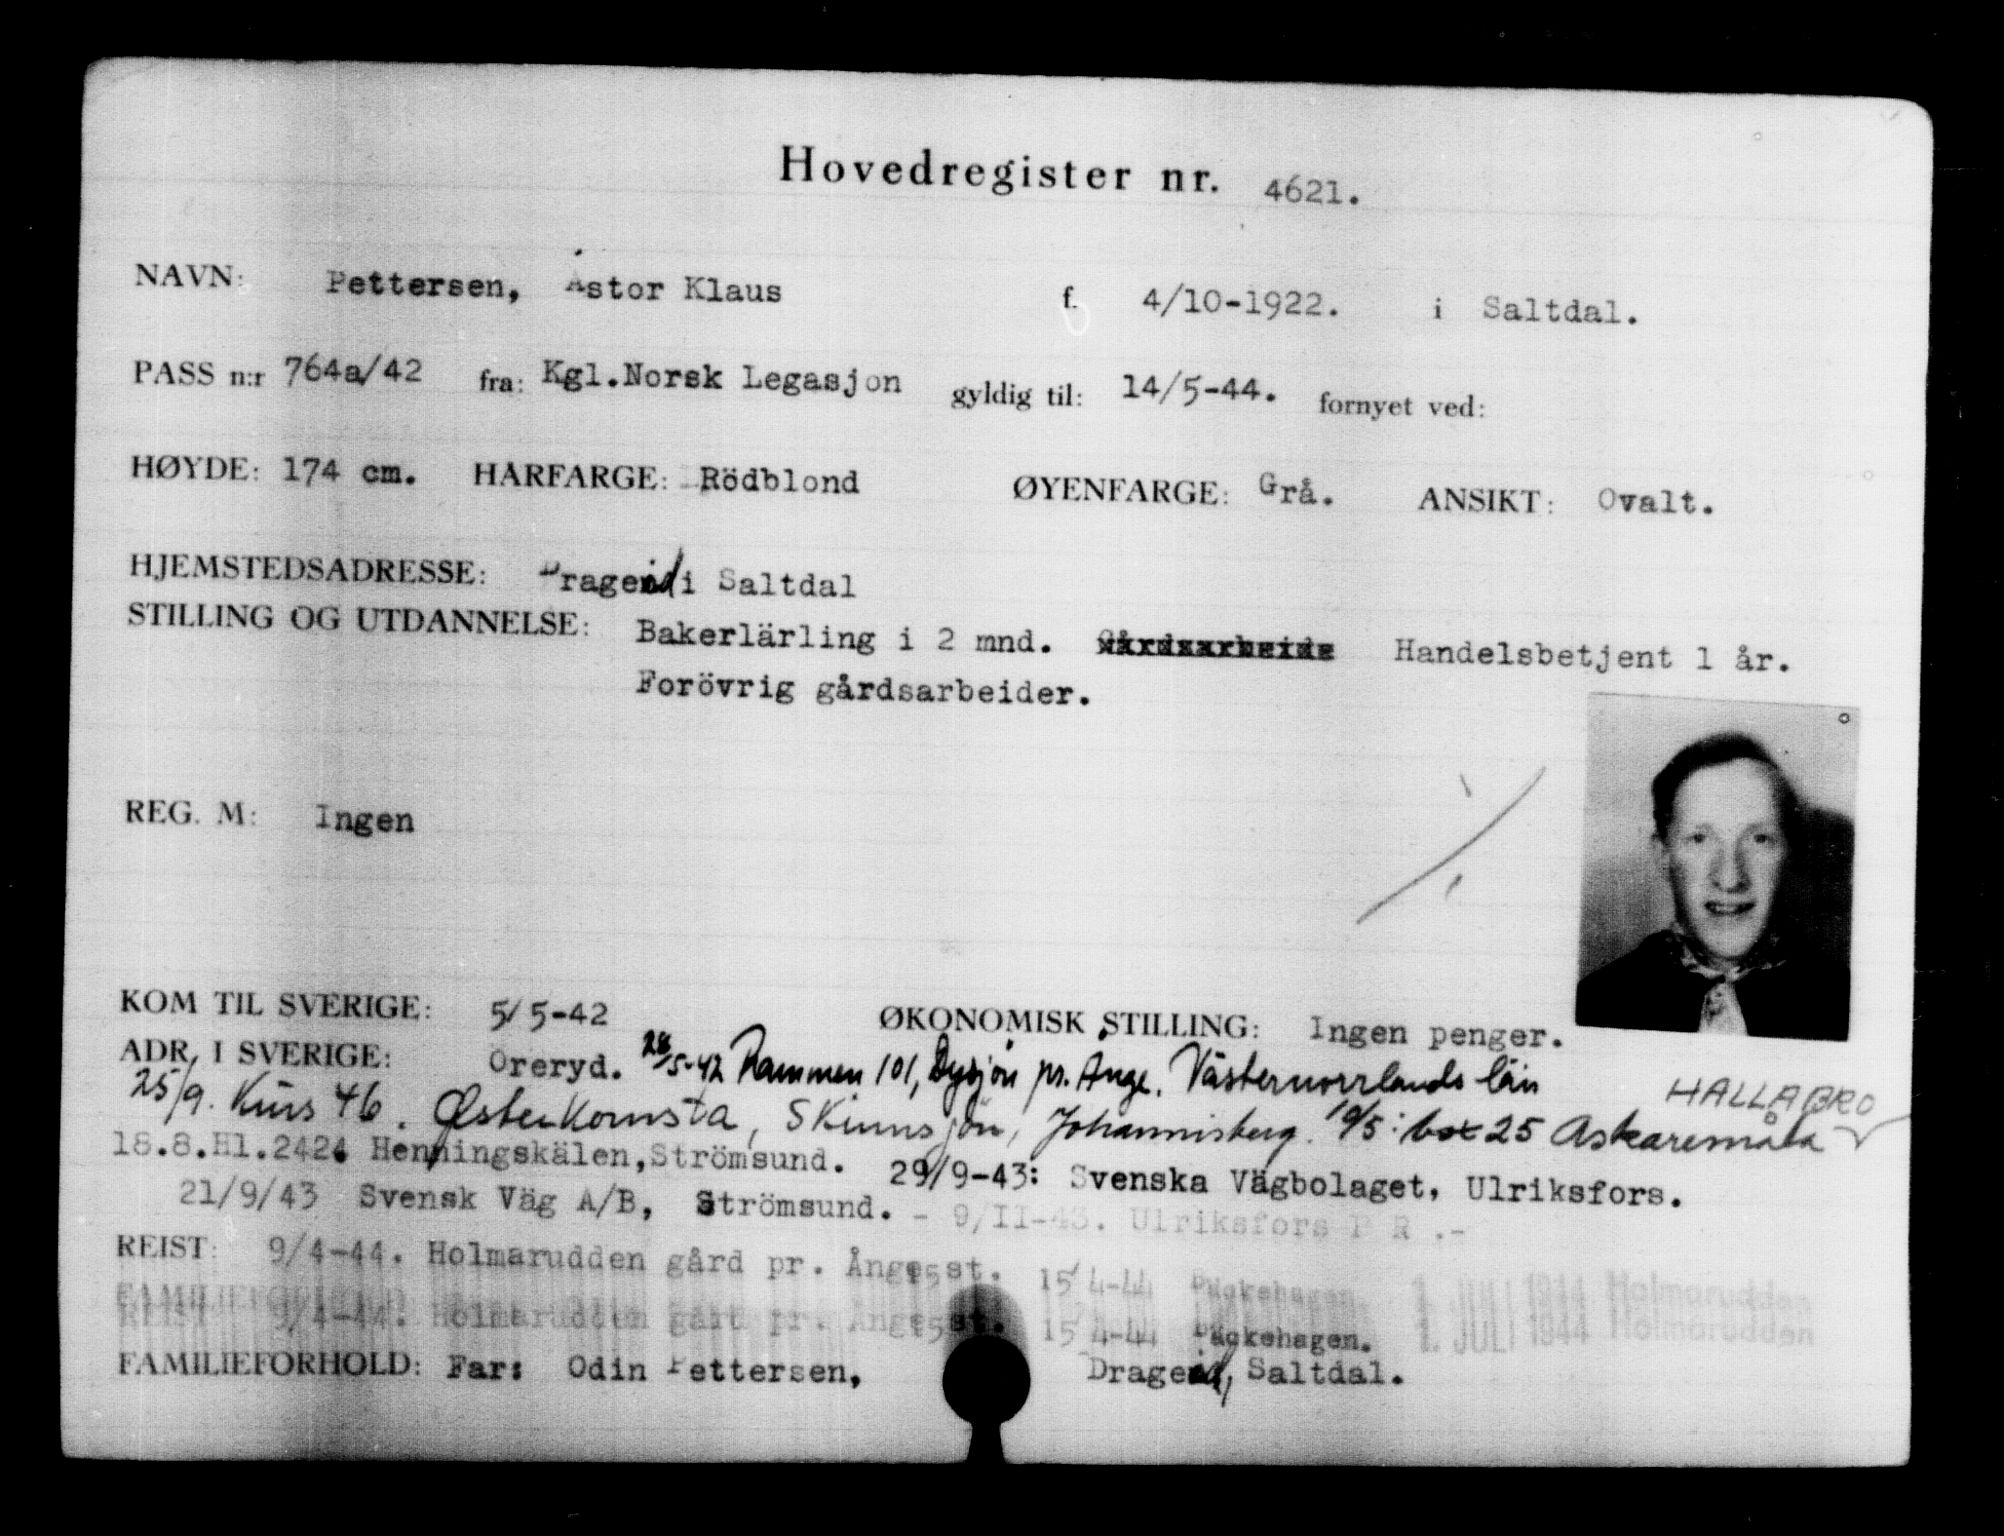 Hovedregister nr. 4621.
NAVN: Pettersen, Astor Klaus f. 4/10-1922. i Saltdal.
PASS n:r 764a/42 fra: Kgl.Norsk Legasjon gyldig til: 14/5-44. fornyet ved:
HØYDE: 174 cm. HÅRFARGE: Rödblond ØYENFARGE: Grå. ANSIKT: Ovalt.
HJEMSTEDSADRESSE: Drageid i Saltdal
STILLING OG UTDANNELSE: Bakerlärling i 2 mnd. Handelsbetjent 1 år.
Forövrig gårdsarbeider.
REG. M: Ingen
KOM TIL SVERIGE: 5/5-42 ØKONOMISK STILLING: Ingen penger.
ADR. I SVERIGE: Öreryd. 28/5-42 Rammen 101, Dysjön pr. Ånge. Västernorrlands län
HALLABRO
25/9. Kurs 46. Østerkomsta, Skinnsjön, Johannisberg. 10/5: box 25 Askaremåla
18.8.H1.2424 Henningskälen, Strömsund. 29/9-43: Svenska Vägbolaget, Ulriksfors.
21/9/43 Svensk Väg A/B, Strömsund. - 9/II-43. Ulriksfors P R .-
REIST: 9/4-44. Holmarudden gård pr. Ånge st. 15 4-44 Päckehagen. 1. JULI 1944 Holmarudden
FAMILIEFORHOLD:
REIST 9/4-44. Holmarudden gård pr. Ånge st. 15 4-44 Päckehagen. 1. JULI 1944 Holmarudden
FAMILIEFORHOLD: Far: Odin Pettersen, Drageid, Saltdal.